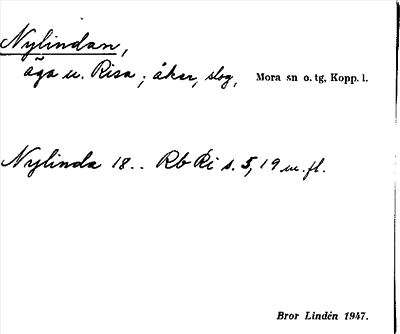 Nylindan,
äga u. Risa; åker, slog, Mora sn o. tg, Kopp. l.
Nylinda 18.. Rb Ri s. 5, 19 m. fl.
Bror Lindén 1947.